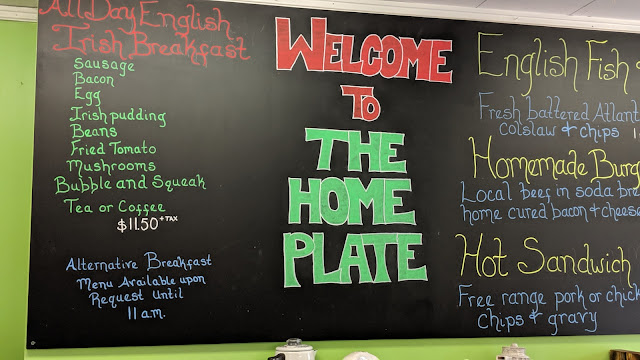 All Day English
Irish Breakfast
Sausage
Bacon
Egg
Irish pudding
Beans
Fried Tomato
Mushrooms
Bubble and Squeak
Tea or Coffee
$11.50 + TAX
Alternative Breakfast
Menu Available upon
Request until
11 a.m.
WELCOME
TO
THE
HOME
PLATE
English Fish
Fresh battered Atlant
colslaw & chips 1
Homemade Burg
Local beef in soda bre
home cured bacon & cheese
Hot Sandwich
Free range pork or chick
chips & gravy